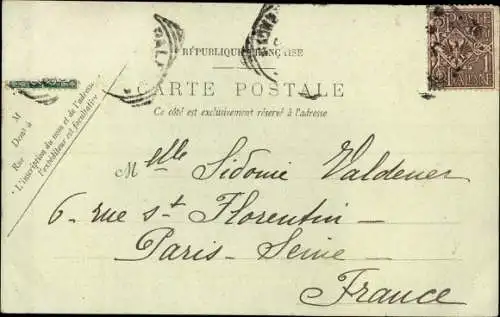 RÉPUBLIQUE FRANÇAISE
CARTE POSTALE
Ce côté est exclusivement réservé à l'adresse
M
Demt à
Rue
L'inscription du nom et de l'adresse de
l'expéditeur est facultative
Melle Sidonie Valdener
6 rue St Florentin -
Paris - Seine -
France